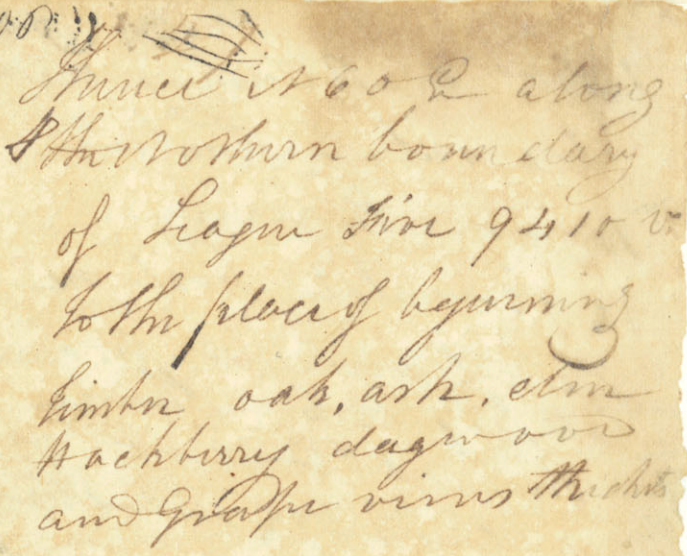 Thence N 60 E along
the Northern boundary
of League Five 9410 v.
to the place of beginning
timber oak, ash, elm
Hackberry dagwood
and Grape vines